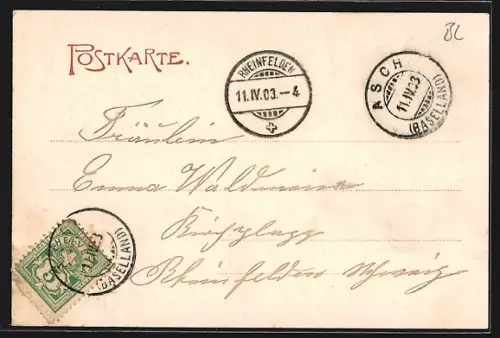 BL
POSTKARTE.
RHEINFELDEN
11.IV.03.–4
ASCH
11.IV.03
(BASELLAND)
Fräulein
Emma
Kirchplatz
Rheinfelden Schweiz
HELVETIA
5
(BASELLAND)